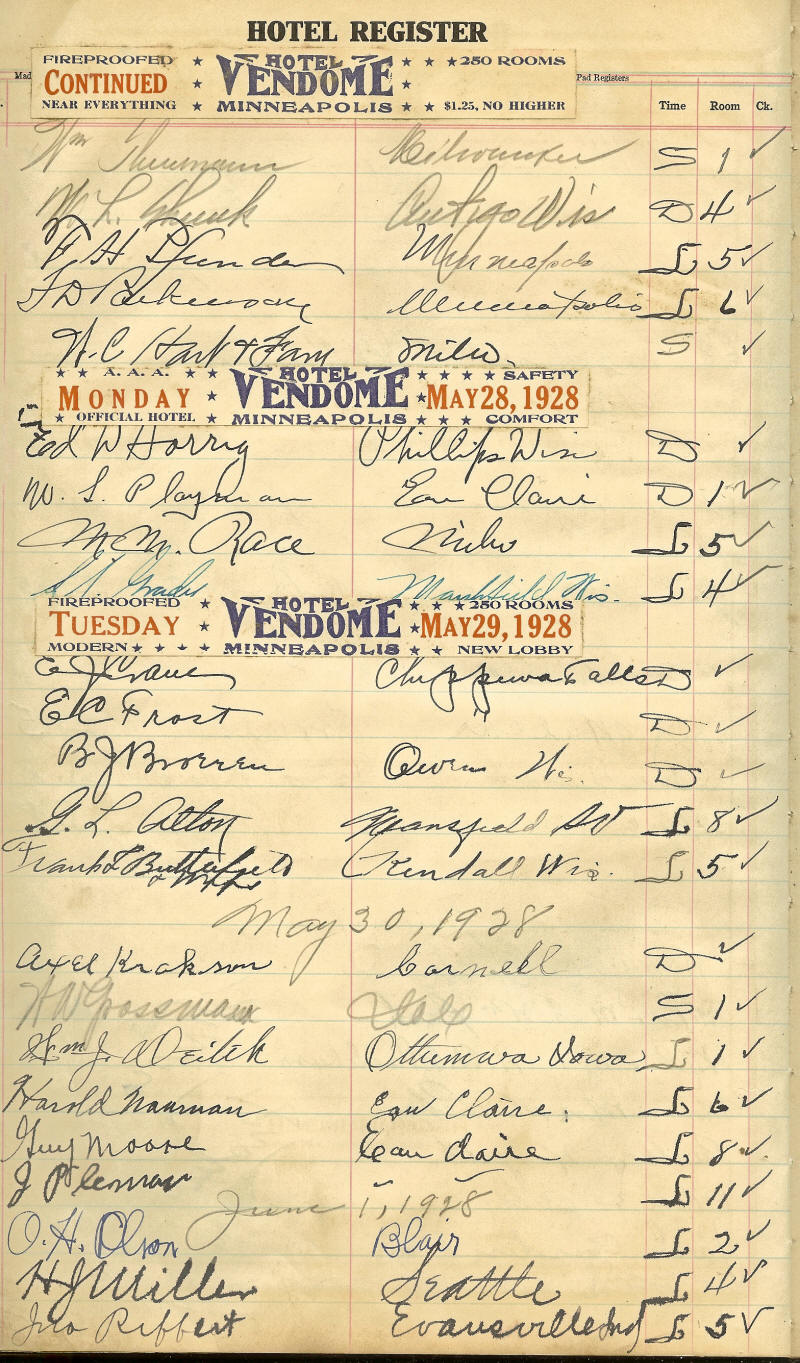 HOTEL REGISTER
FIREPROOFED ★ HOTEL ★ ★ ★ 250 ROOMS
Mad CONTINUED ★ VENDOME ★ Pad Registers
NEAR EVERYTHING ★ MINNEAPOLIS ★ $1.25, NO HIGHER
Time Room Ck.
Wm Milwaukee S 1 ✓
M. L. Antigo Wis D 4 ✓
H Pfunder Minneapolis L 5 ✓
Minneapolis L 6 ✓
W. C Hart & Fam Milw. S ✓
★ ★ A. A. A. ★ ★ HOTEL ★ ★ ★ SAFETY
MONDAY ★ VENDOME ★ MAY 28, 1928
★ OFFICIAL HOTEL ★ MINNEAPOLIS ★ ★ ★ COMFORT
Ed W Horrig Phillips Wis D ✓
M. S. Playman Eau Claire D 1 ✓
M. M. Race Milw L 5 ✓
Marshfield Wis. L 4 ✓
FIREPROOFED ★ HOTEL ★ ★ ★ 250 ROOMS
TUESDAY ★ VENDOME ★ MAY 29, 1928
MODERN ★ ★ ★ ★ MINNEAPOLIS ★ ★ NEW LOBBY
E J Craven Chippewa Falls D ✓
E C Frost " D ✓
B J Broeren Owen Wis. D ✓
G. L. Alton L 8 ✓
Frank L Butterfield & Wife Kendall Wis. L 5 ✓
May 30, 1928
Axel Cornell D ✓
Grossman S 1 ✓
Ottumwa Iowa L 1 ✓
Harold Nauman Eau Claire. L 6 ✓
Guy Moore Eau Claire L 8 ✓
J P " " L 11 ✓
June 1, 1928
O. H. Olson Blair L 2 ✓
H J Miller Seattle L 4 ✓
Jno Riffert Evansville Ind L 5 ✓